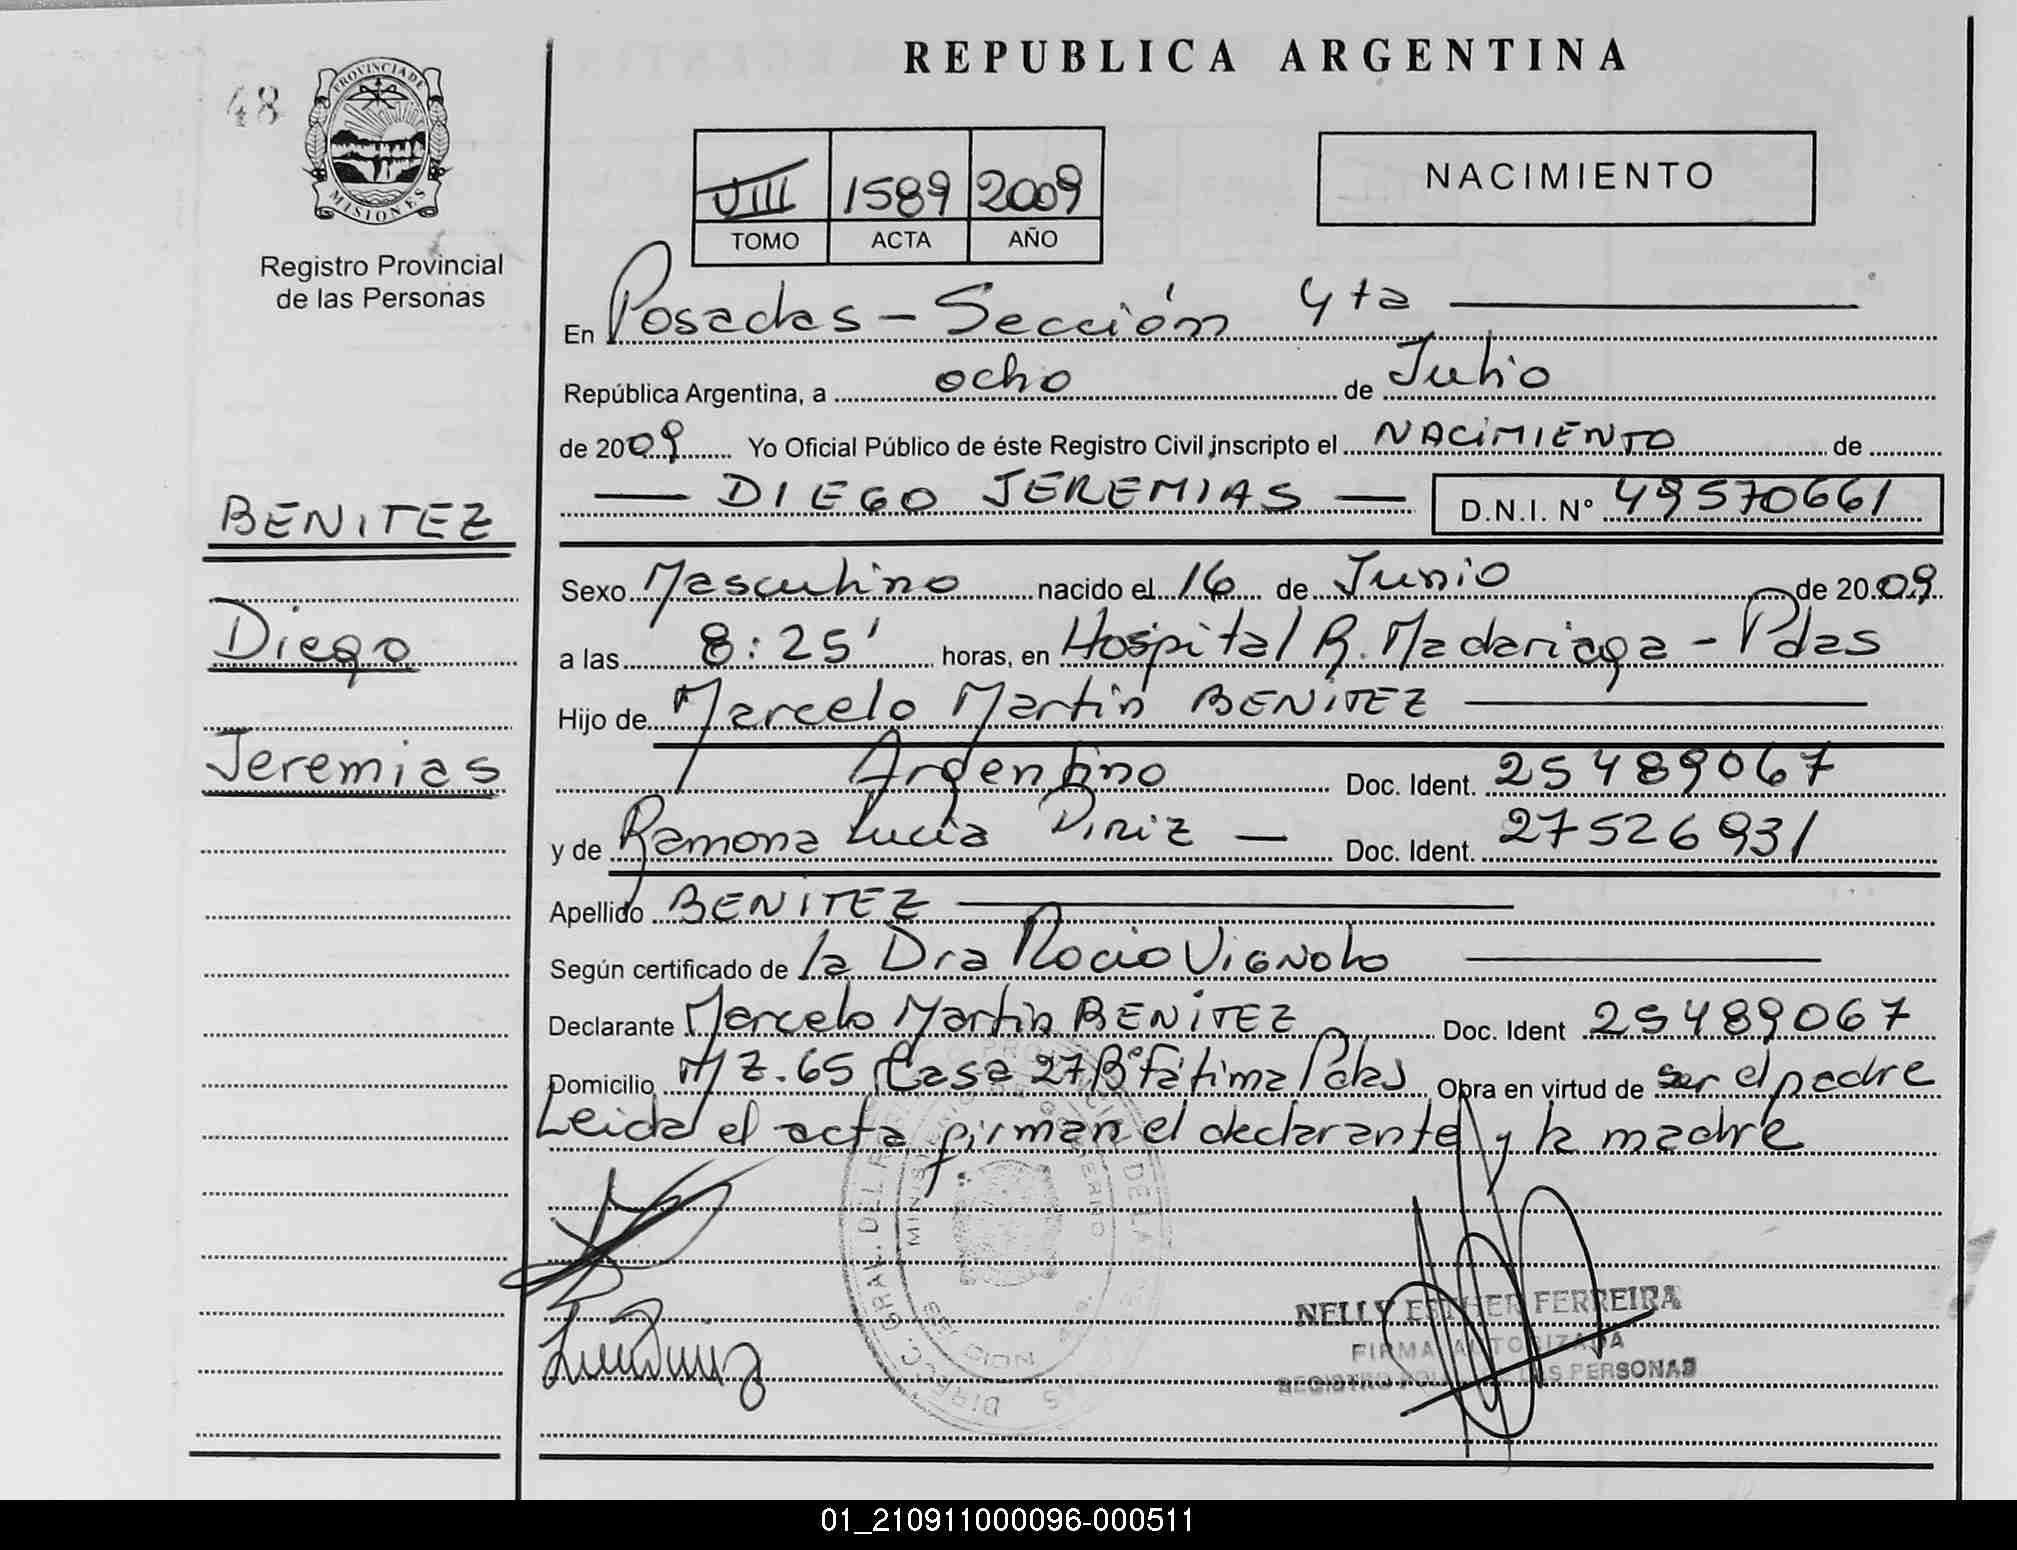 48
PROVINCIA DE
MISIONES
Registro Provincial
de las Personas
REPUBLICA ARGENTINA
VIII 1589 2009
TOMO ACTA AÑO
NACIMIENTO
En Posadas - Sección 4ta
República Argentina, a ocho de Julio
de 2009 Yo Oficial Público de éste Registro Civil inscripto el NACIMIENTO de
DIEGO JEREMIAS D.N.I. N° 49570661
BENITEZ
Diego
Jeremias
Sexo Masculino nacido el 16 de Junio de 2009
a las 8:25' horas, en Hospital R. Madariaga - Pdas
Hijo de Marcelo Martin BENITEZ
Argentino Doc. Ident. 25489067
y de Ramona Lucia Diniz Doc. Ident. 27526931
Apellido BENITEZ
Según certificado de la Dra Rocio Vignolo
Declarante Marcelo Martin BENITEZ Doc. Ident 25489067
Domicilio MZ. 65 Casa 27 B° Fátima Pdas Obra en virtud de ser el padre
Leida el acta firman el declarante y la madre
NELLY ESTHER FERREIRA
FIRMA AUTORIZADA
PERSONAS
01_210911000096-000511